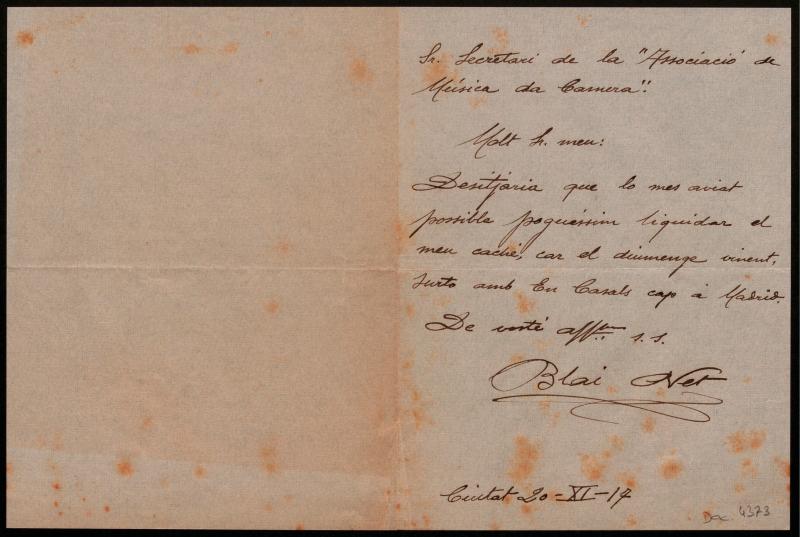 Sr. Secretari de la "Associació de
Música da Camera".
Molt Sr. meu:
Desitjaria que lo mes aviat
possible poguéssim liquidar el
meu caché, car el diumenge vinent,
surto amb En Casals cap á Madrid.
De vosté affm. s.s.
Blai Net
Ciutat 20-XI-17
Doc. 4373